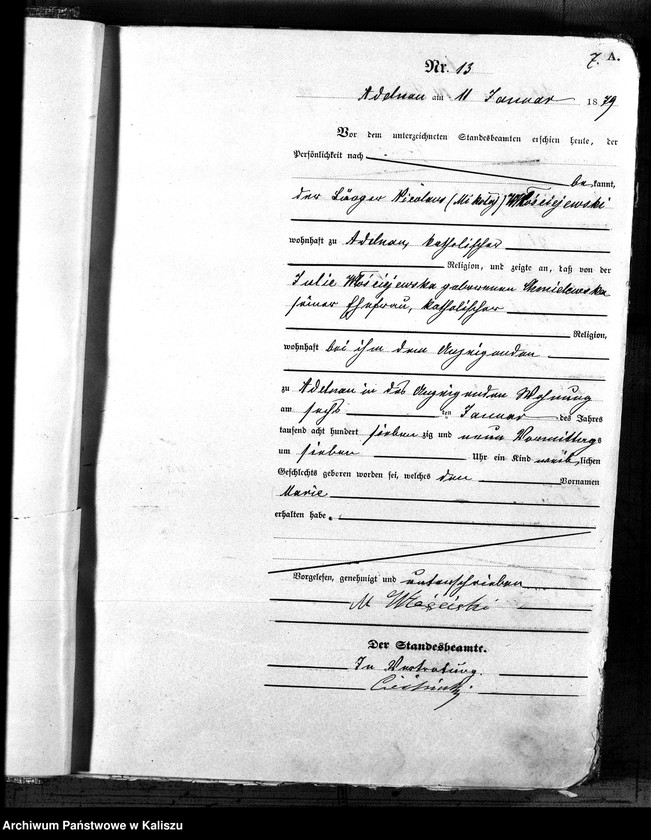 7. A.
Nr. 13
Adelnau am 11 Januar 1879
Vor dem unterzeichneten Standesbeamten erschien heute, der
Persönlichkeit nach
bekannt,
der Nicolaus (Mikołaj)
wohnhaft zu Adelnau, katholischer
Religion, und zeigte an, daß von der
Julie geborenen
seiner Ehefrau, katholischer
Religion,
wohnhaft bei ihm dem Anzeigenden
zu Adelnau in des Anzeigenden Wohnung
am sechs ten Januar des Jahres
tausend acht hundert siebenzig und neun Vormittags
um sieben Uhr ein Kind weiblichen
Geschlechts geboren worden sei, welches den Vornamen
Marie
erhalten habe.
Vorgelesen, genehmigt und unterschrieben
M
Der Standesbeamte.
In Vertretung.
Archiwum Państwowe w Kaliszu